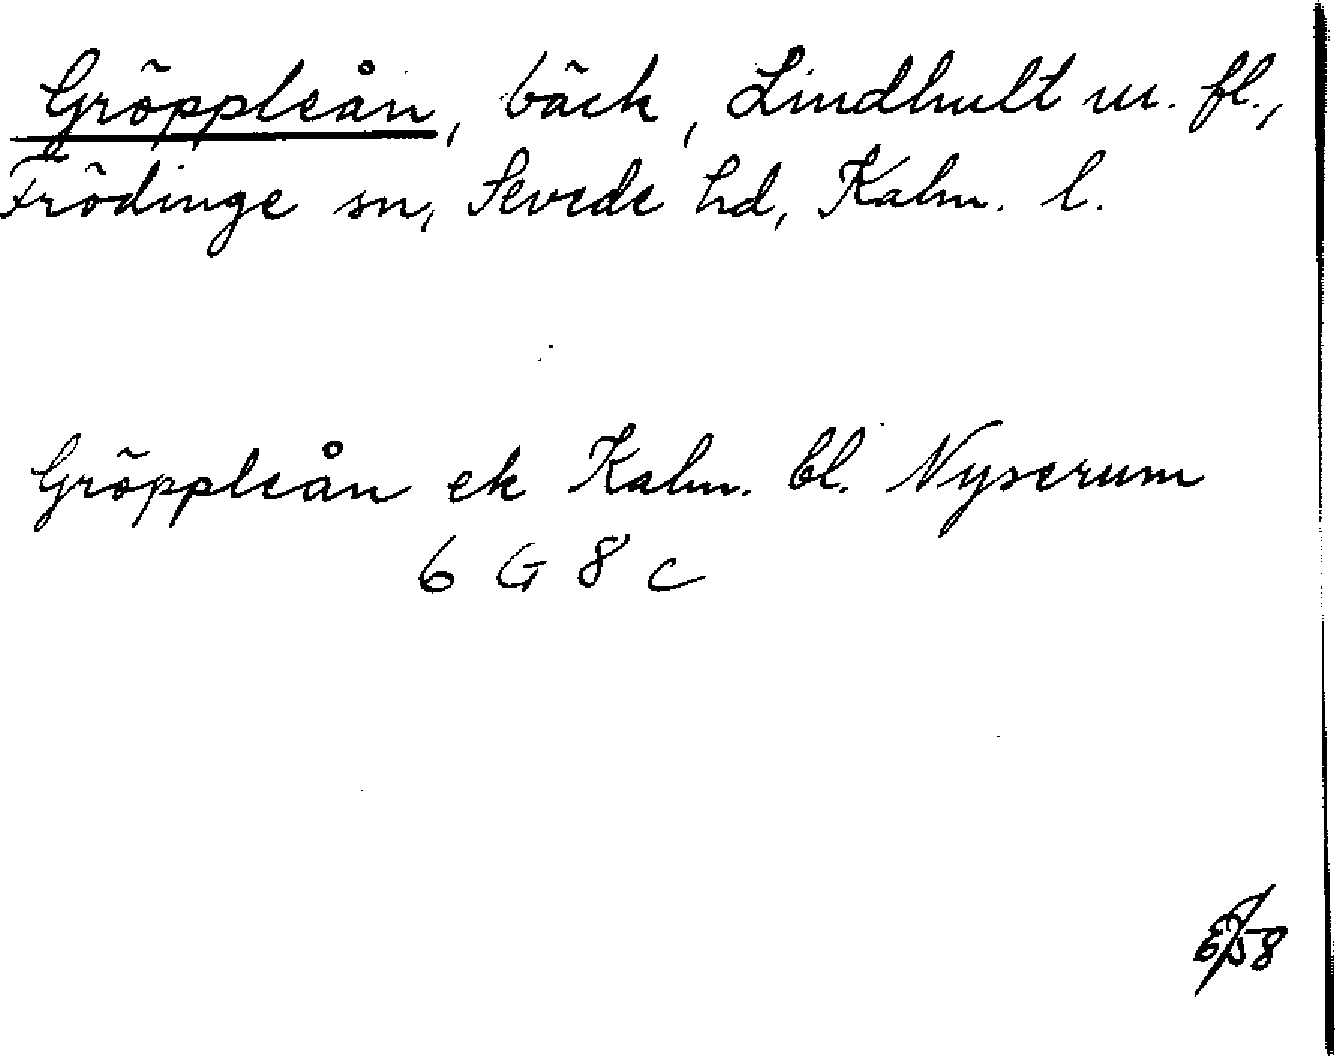 Gröppleån, bäck, Lindhult m. fl.,
Frödinge sn, Sevede hd, Kalm. l.
Gröppleån ek Kalm. bl. Nyserum
6 G 8 c